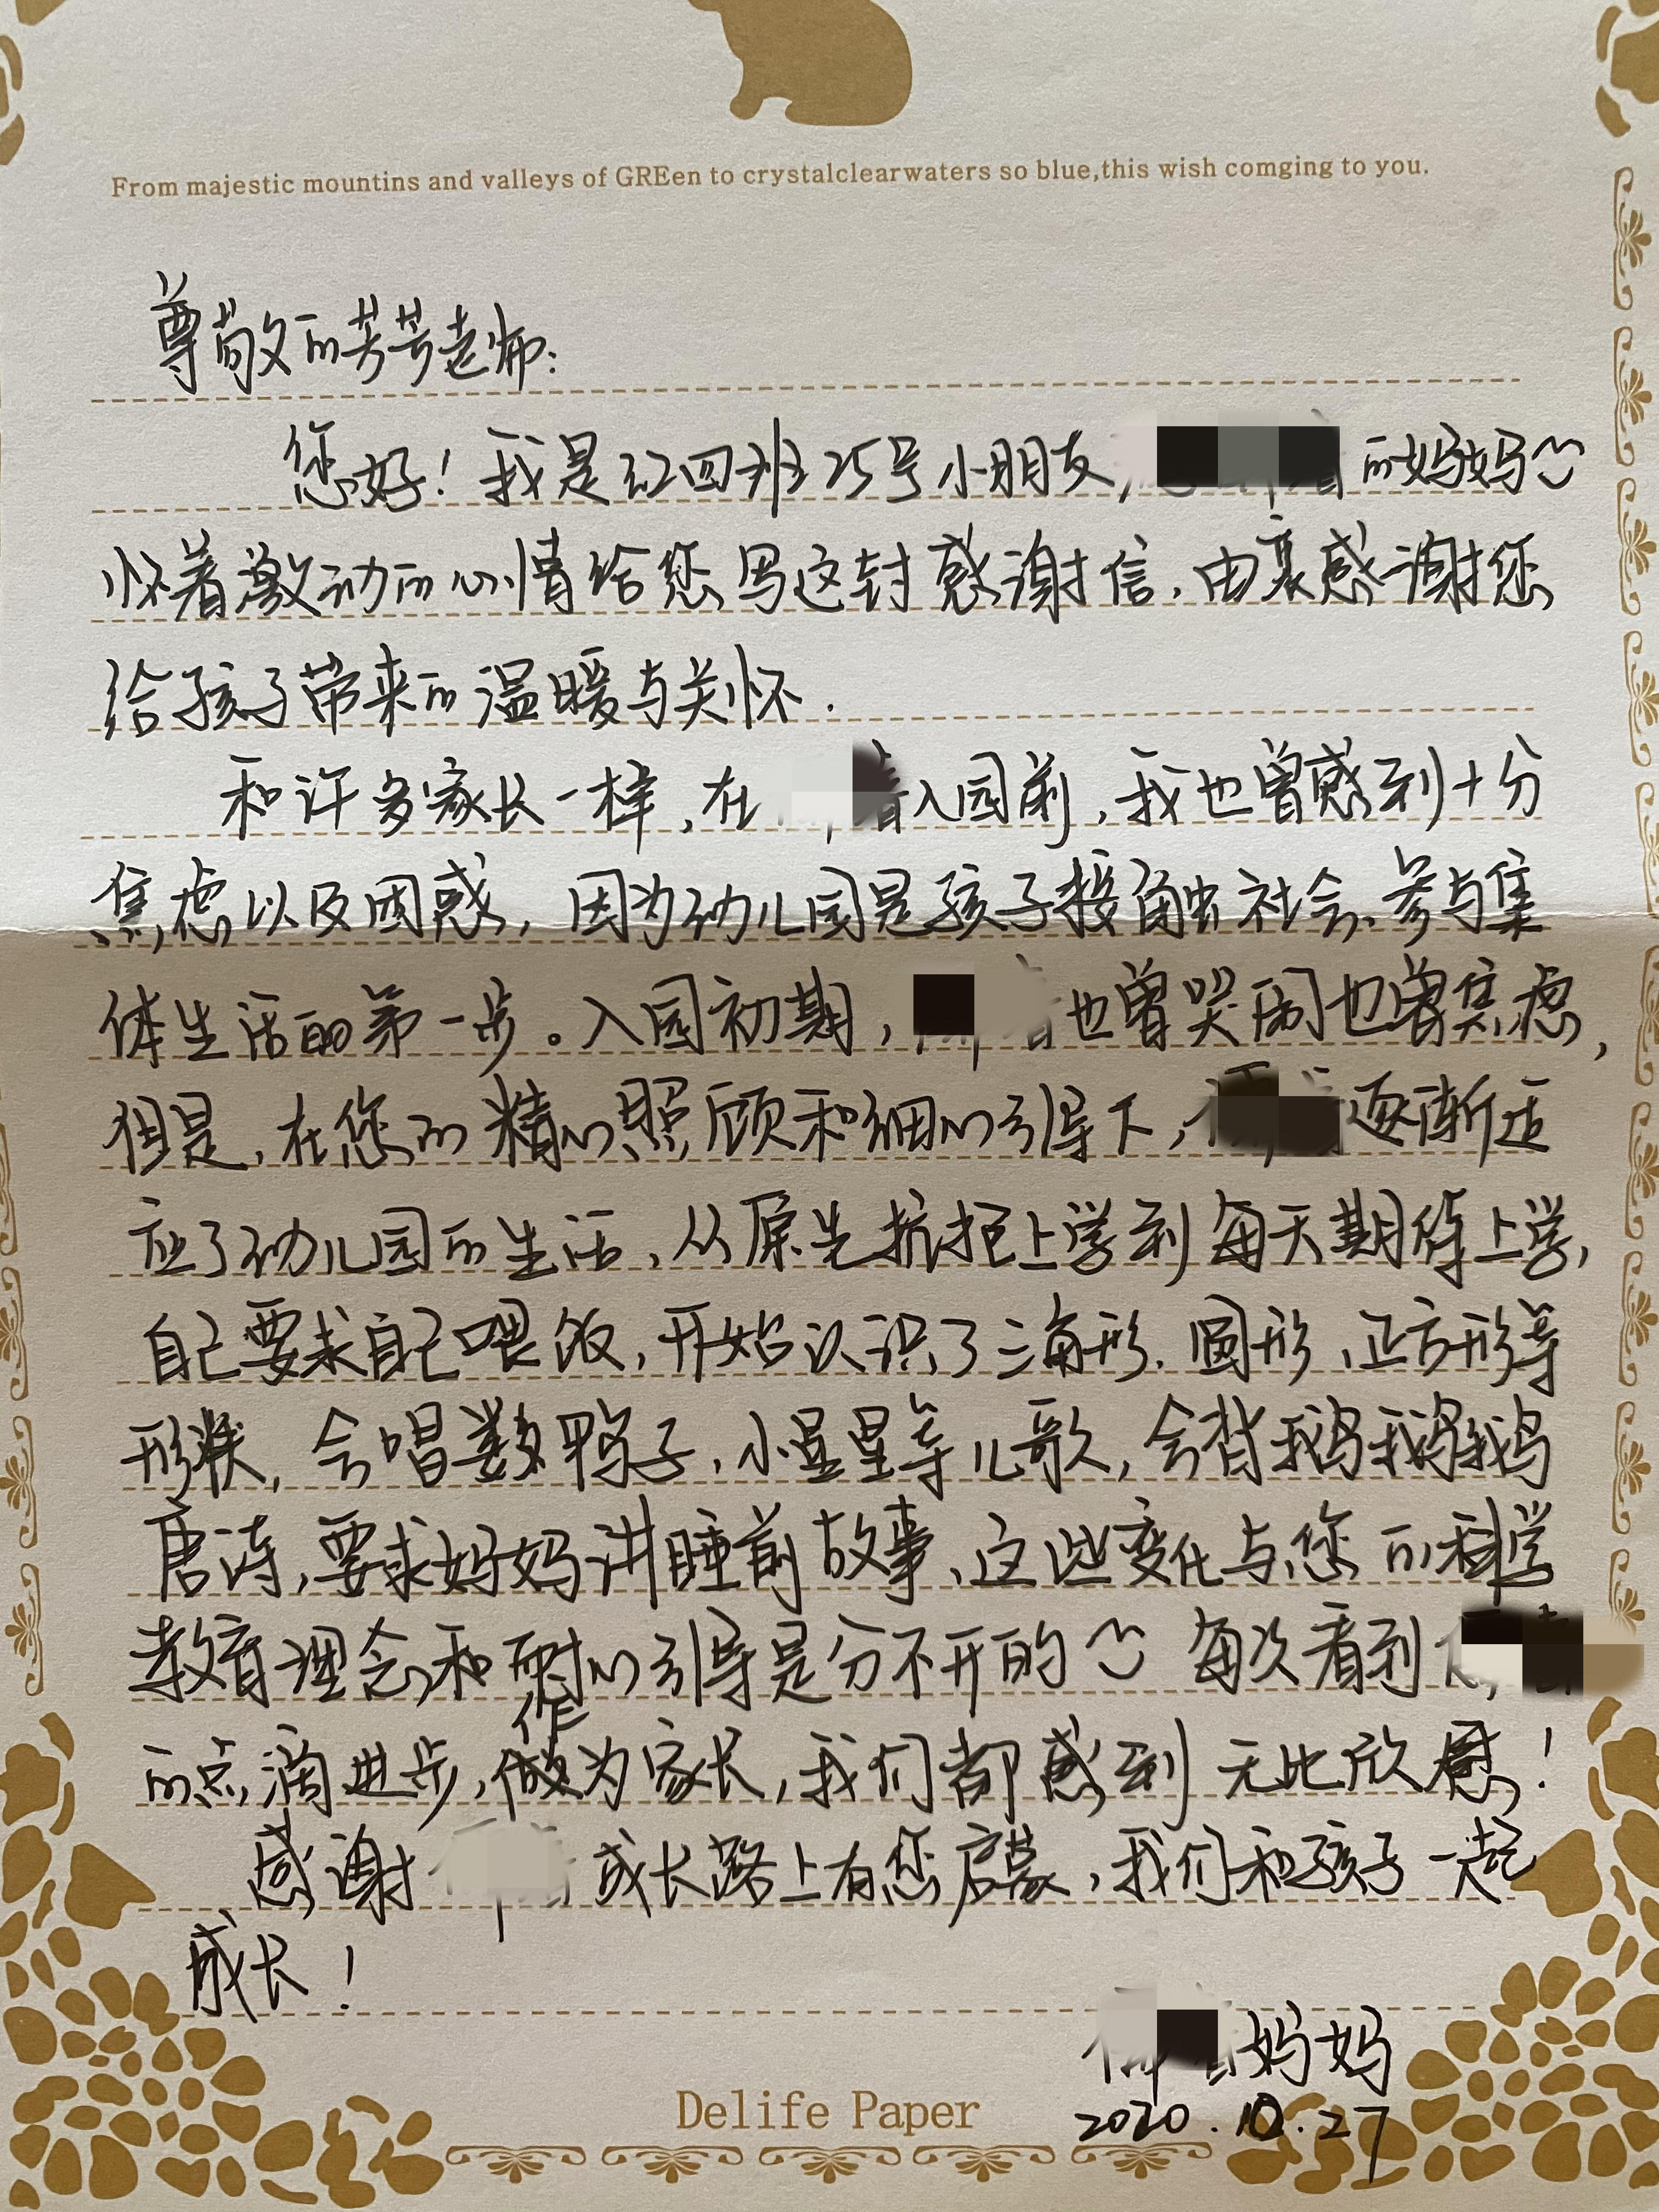 From majestic mountins and valleys of GREen to crystalclearwaters so blue,this wish comging to you.
尊敬的芳芳老师:
您好!我是红四班25号小朋友 的妈妈
怀着激动的心情给您写这封感谢信,由衷感谢您
给孩子带来的温暖与关怀.
和许多家长一样,在 入园前,我也曾感到十分
焦虑以及困惑,因为幼儿园是孩子接触社会、参与集
体生活的第一步。入园初期, 也曾哭闹也曾焦虑,
但是,在您的精心照顾和细心引导下, 逐渐适
应了幼儿园的生活,从原先抗拒上学到每天期待上学,
自己要求自己喂饭,开始认识了三角形、圆形、正方形等
形状,会唱数鸭子、小星星等儿歌,会背鹅鹅鹅
唐诗,要求妈妈讲睡前故事、这些变化与您的科学
教育理念和耐心引导是分不开的 每次看到
的点滴进步,作为家长,我们都感到无比欣慰!
感谢 成长路上有您启蒙,我们和孩子一起
成长!
妈妈
2020.10.27
Delife Paper